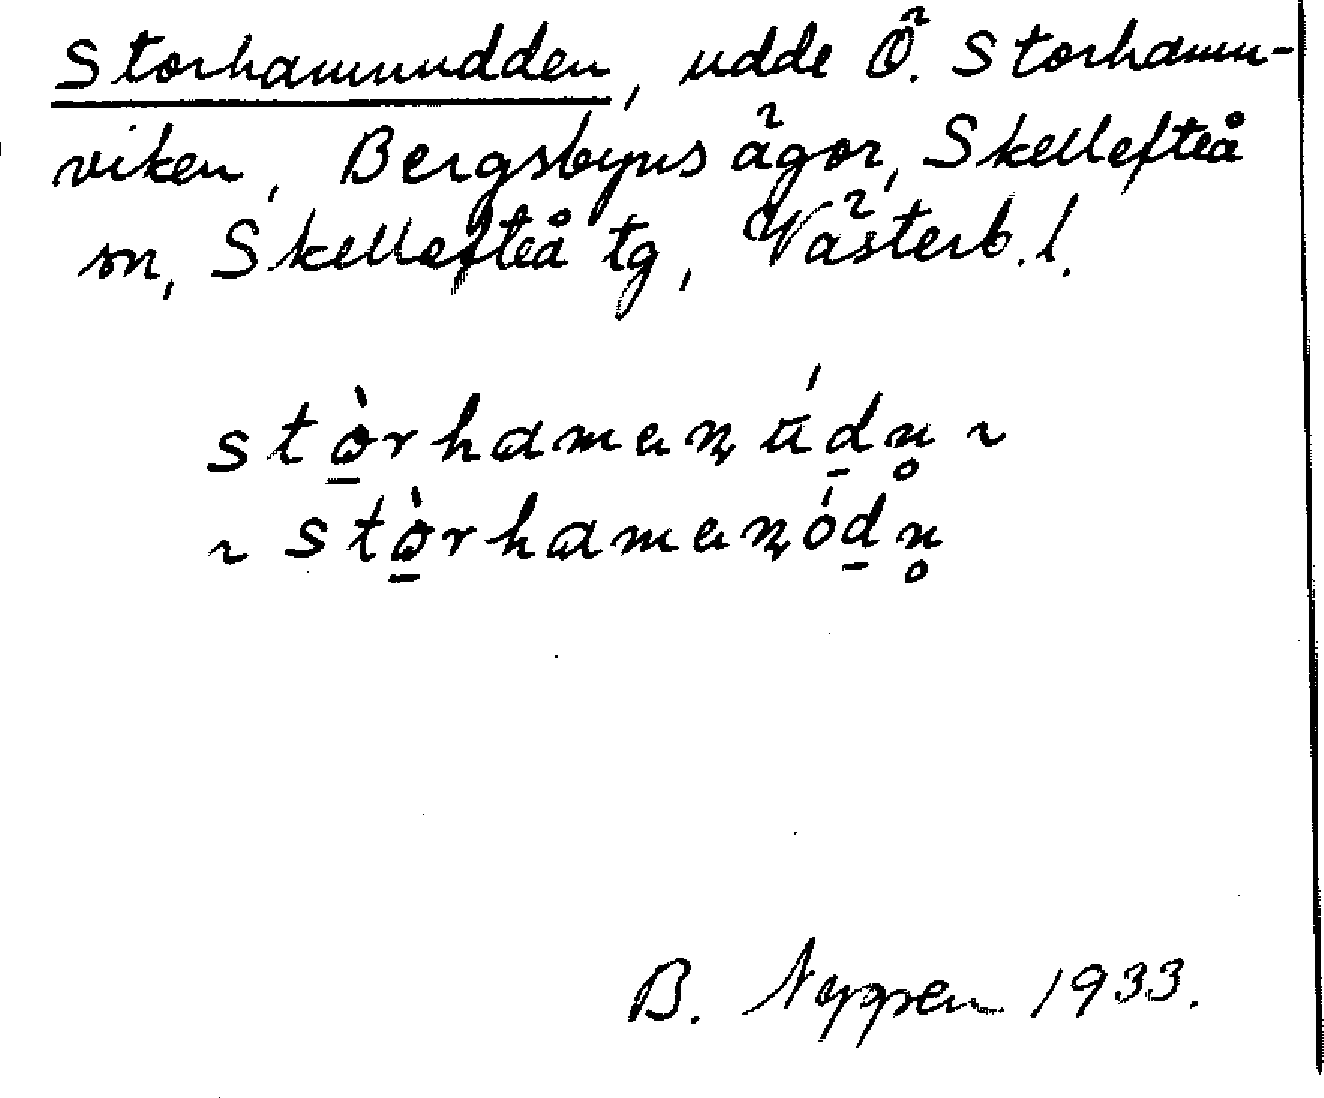 Storhamnudden, udde Ö. Storhamn-
viken, Bergsbyns ägor, Skellefteå
sn, Skellefteå tg, Västerb. l.
stò̱rhamenúd̠n̥ ~
~ stò̱rhamenód̠n̥
B. Nyppen 1933.